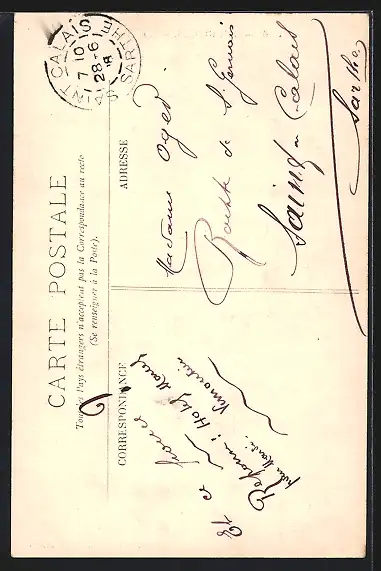 CARTE POSTALE
Tous les Pays étrangers n'acceptent pas la Correspondance au recto
(Se renseigner à la Poste).
CORRESPONDANCE
ADRESSE
ST CALAIS
7 10
28-6
SARTHE
Madame Oger
Route de St Gervais
Saint-Calais
Sarthe
Et ce
Réponse: Hôtel